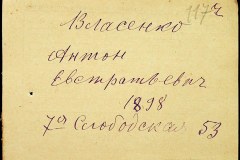 117ч
Власенко
Антон
Евстратьевич
1898
7я Слободская 53